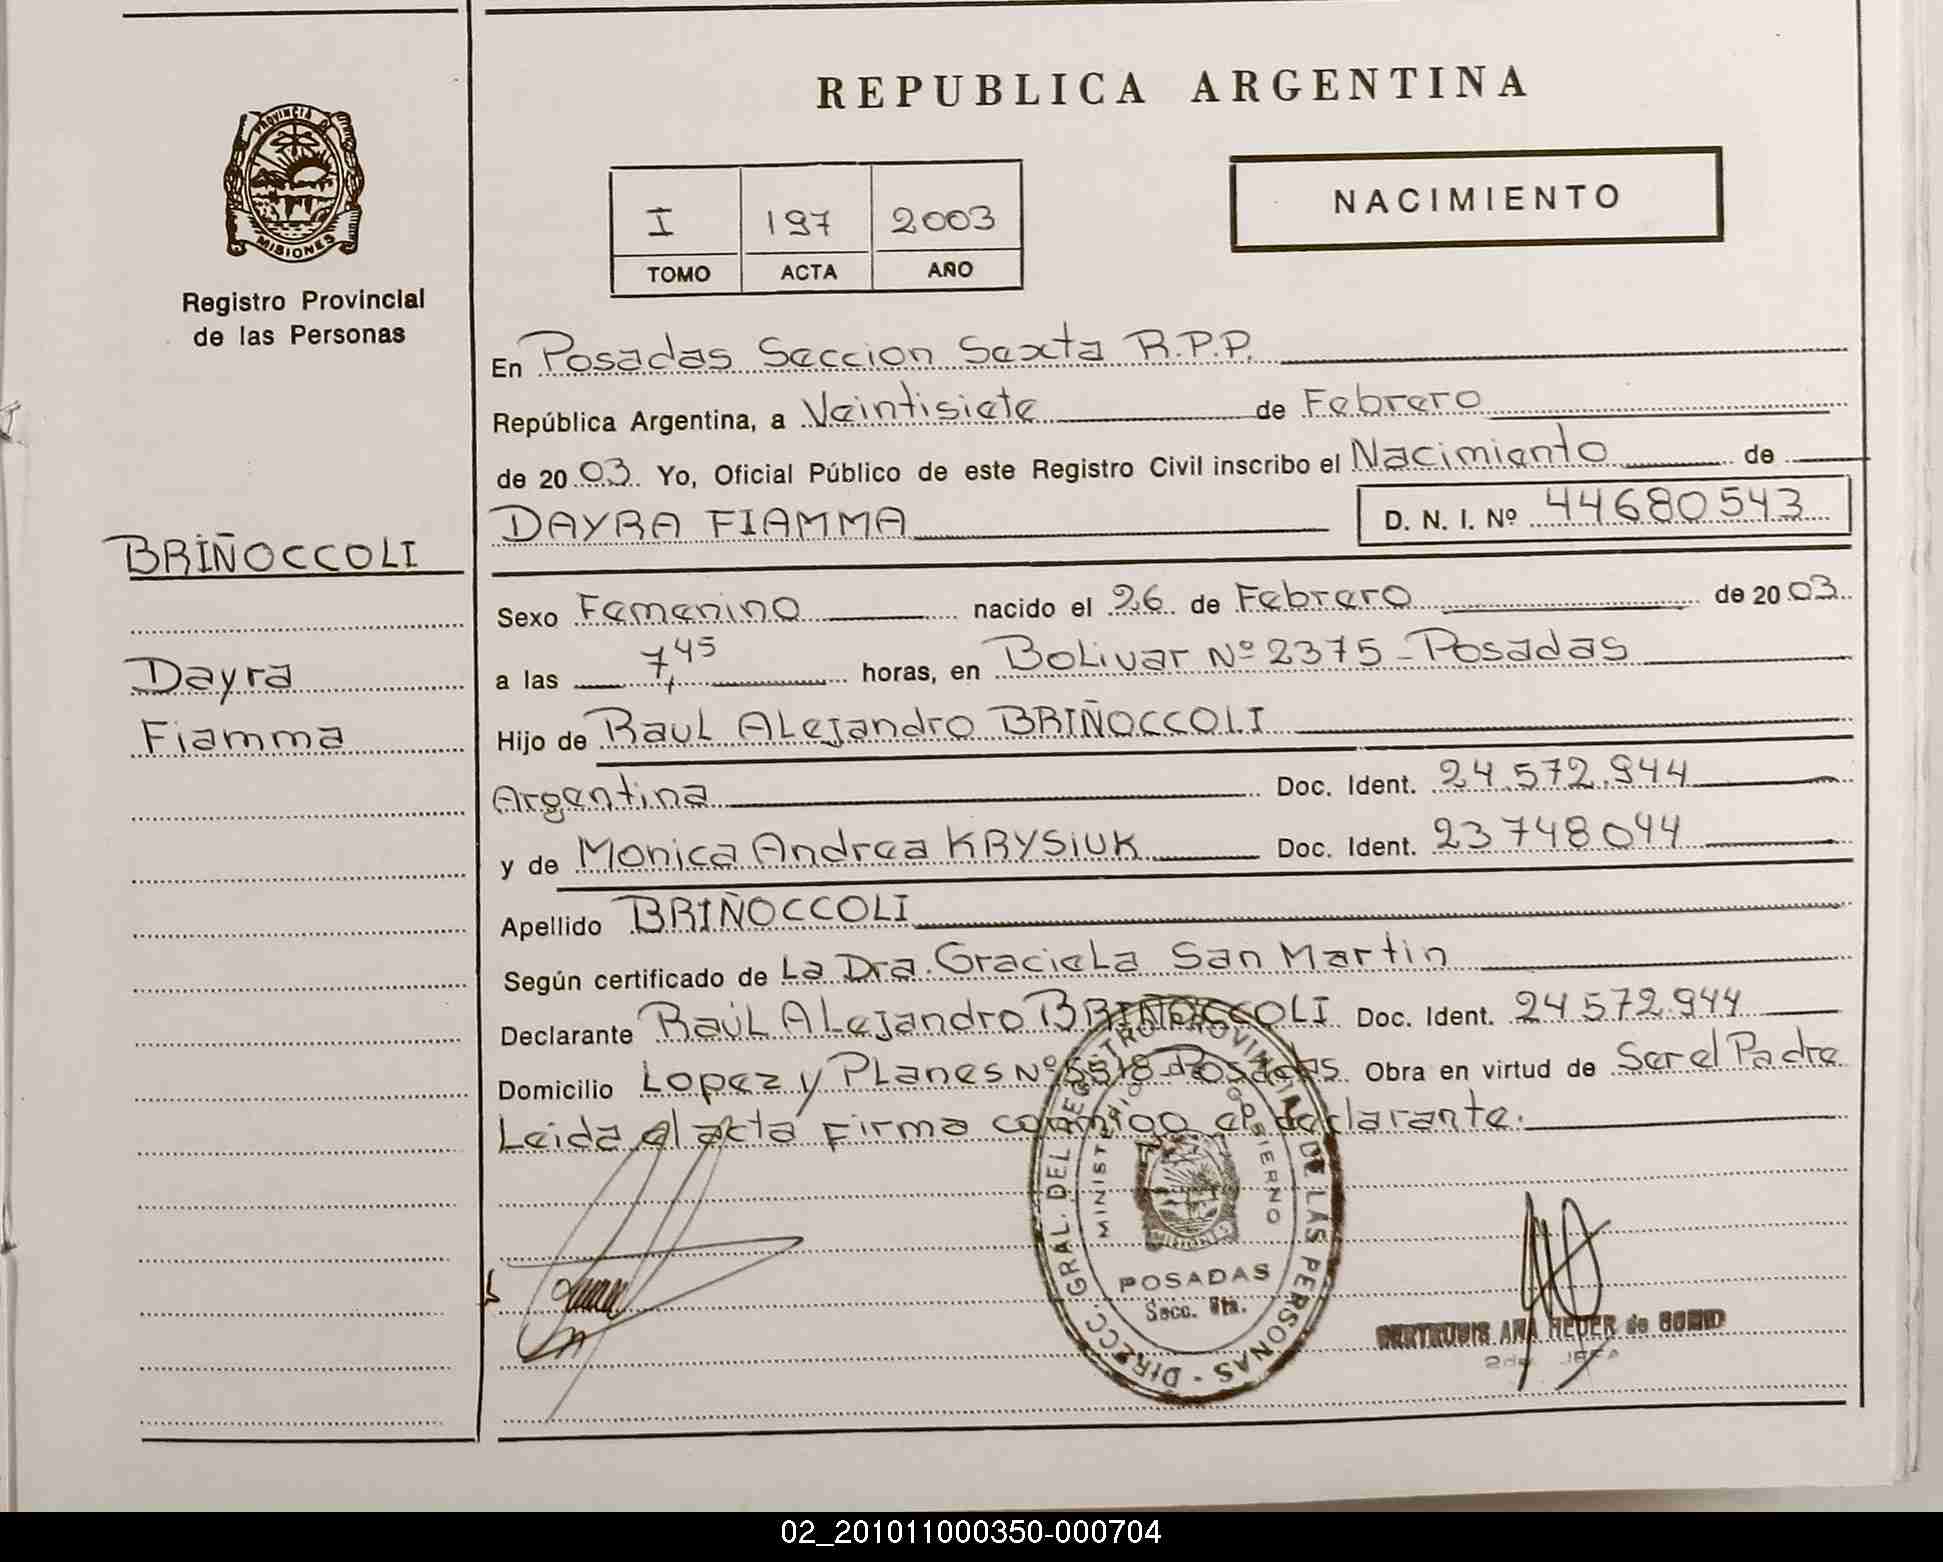 REPUBLICA ARGENTINA
PROVINCIA D
MISIONES
Registro Provincial
de las Personas
NACIMIENTO
I 197 2003
TOMO ACTA AÑO
En Posadas Seccion Sexta R.P.P.
República Argentina, a Veintisiete de Febrero
de 20 03. Yo, Oficial Público de este Registro Civil inscribo el Nacimiento de
DAYRA FIAMMA D. N. I. Nº 44680543
BRIÑOCCOLI
Dayra
Fiamma
Sexo Femenino nacido el 26 de Febrero de 20 03
a las 7,45 horas, en Bolivar Nº 2375 - Posadas
Hijo de Raul Alejandro BRIÑOCCOLI
Argentina Doc. Ident. 24.572.944
y de Monica Andrea KRYSIUK Doc. Ident. 23748044
Apellido BRIÑOCCOLI
Según certificado de La Dra. Graciela San Martin
Declarante Raúl Alejandro BRIÑOCCOLI Doc. Ident. 24572.944
Domicilio Lopez y Planes Nº 5518 Posadas Obra en virtud de Ser el Padre
Leida el acta firma conmigo el declarante.
DIRECC. GRAL. DEL REGISTRO PROVINCIAL DE LAS PERSONAS
MINISTERIO GOBIERNO
MISIONES
POSADAS
Secc. 6ta.
GERTRUDIS ANA HEDER de
JEFA
02_201011000350-000704